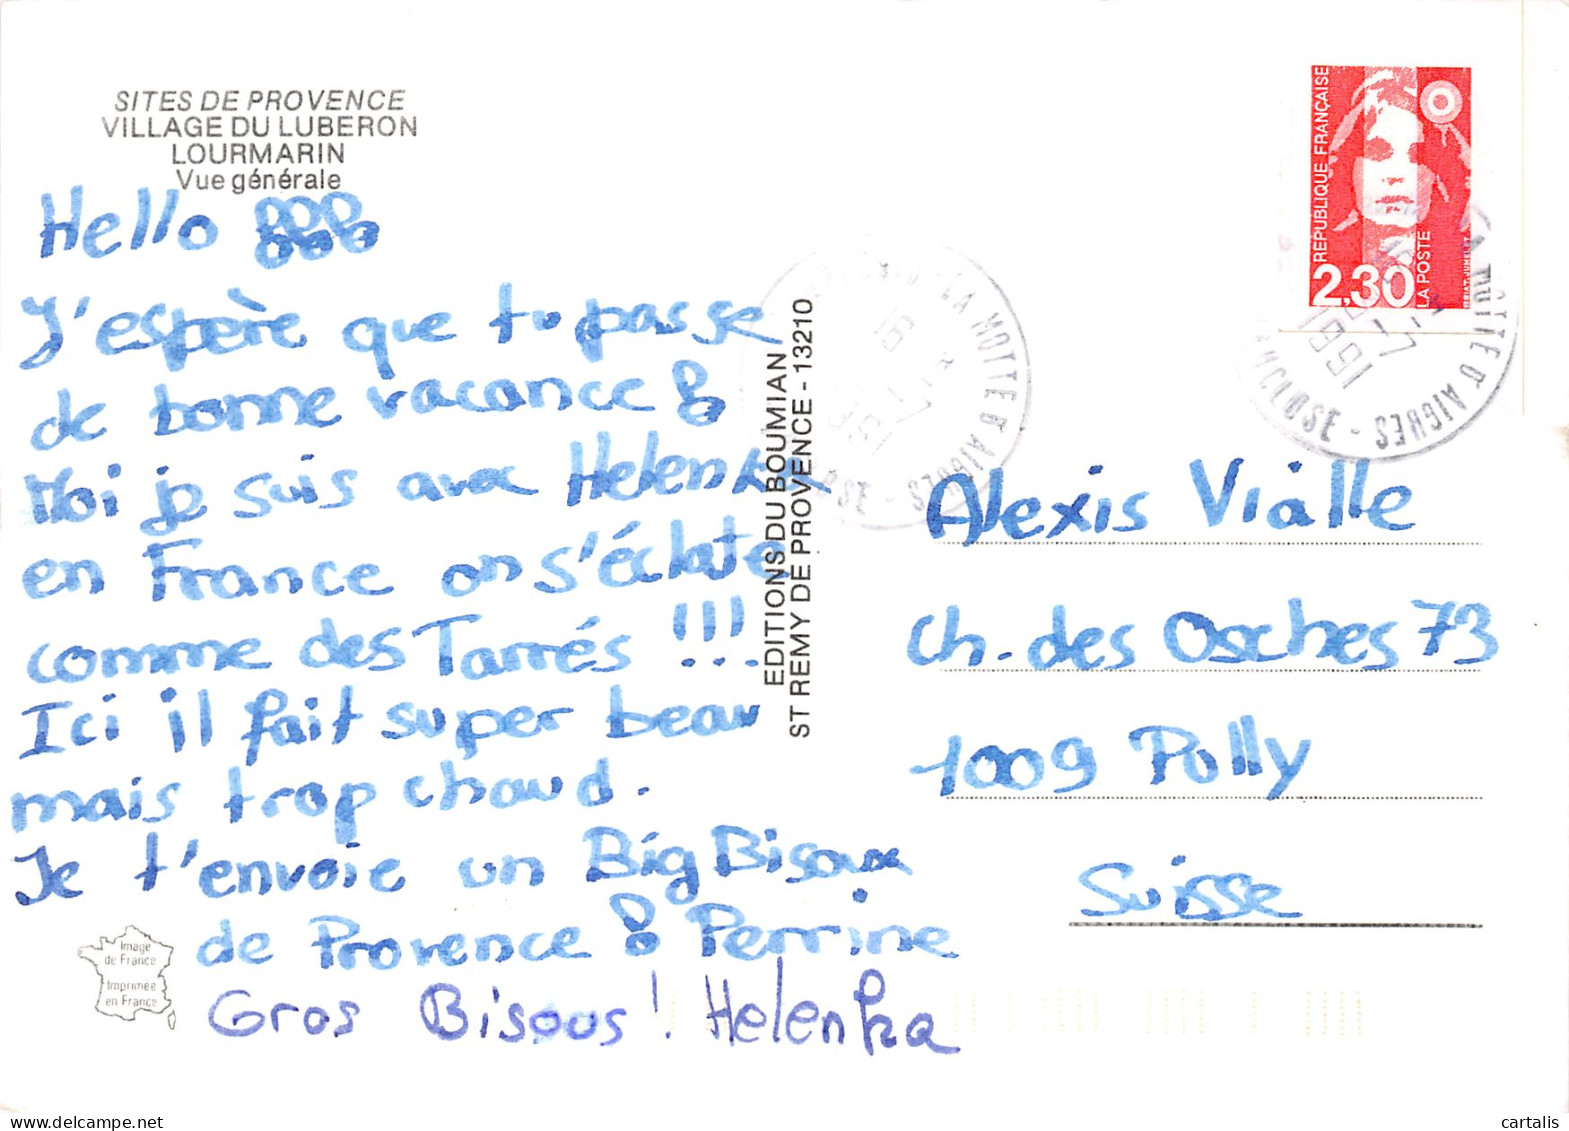 SITES DE PROVENCE
VILLAGE DU LUBERON
LOURMARIN
Vue générale
Hello
J'espère que tu passe
de bonne vacance !
Moi je suis avec Helenka
en France on s'éclate
comme des Tarrés !!!
Ici il fait super beau
mais trop chaud.
Je t'envoie un Big Bisoux
de Provence ! Perrine
Gros Bisous ! Helenka
Image
de France
Imprimée
en France
EDITIONS DU BOUMIAN
ST REMY DE PROVENCE - 13210
REPUBLIQUE FRANÇAISE
2,30
LA POSTE
LA MOTTE D'AIGUES
LA MOTTE D'AIGUES - VAUCLUSE
1991
Alexis Vialle
Ch. des Osches 73
1009 Pully
Suisse
cartalis